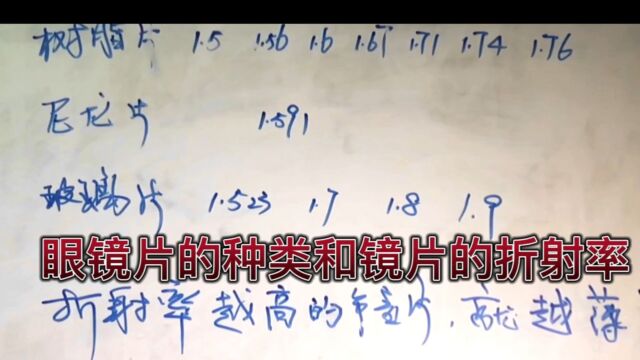 树脂片 1.5 1.56 1.6 1.67 1.71 1.74 1.76
尼龙片 1.591
玻璃片 1.523 1.7 1.8 1.9
眼镜片的种类和镜片的折射率
折射率越高的 片, 越薄